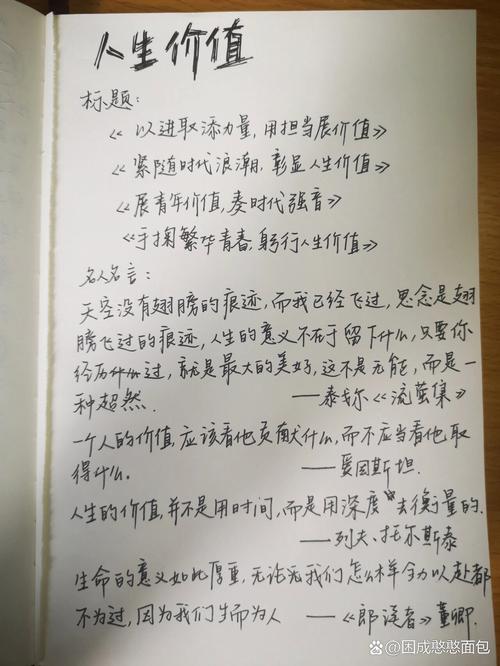 人生价值
标题：
《以进取添力量，用担当展价值》
《紧随时代浪潮，彰显人生价值》
《展青年价值，奏时代强音》
《手掬繁华青春，躬行人生价值》
名人名言：
天空没有翅膀的痕迹，而我已经飞过，思念是翅
膀飞过的痕迹，人生的意义不在于留下什么，只要你
经历什么过，就是最大的美好，这不是无能，而是一
种超然.
——泰戈尔《流萤集》
一个人的价值，应该看他贡献什么，而不应当看他取
得什么。
——爱因斯坦.
人生的价值，并不是用时间，而是用深度去衡量的.
——列夫、托尔斯泰
生命的意义如此厚重，无论无我们怎么样全力以赴都
不为过，因为我们生而为人 ——《朗读者》董卿.
@困成憨憨面包